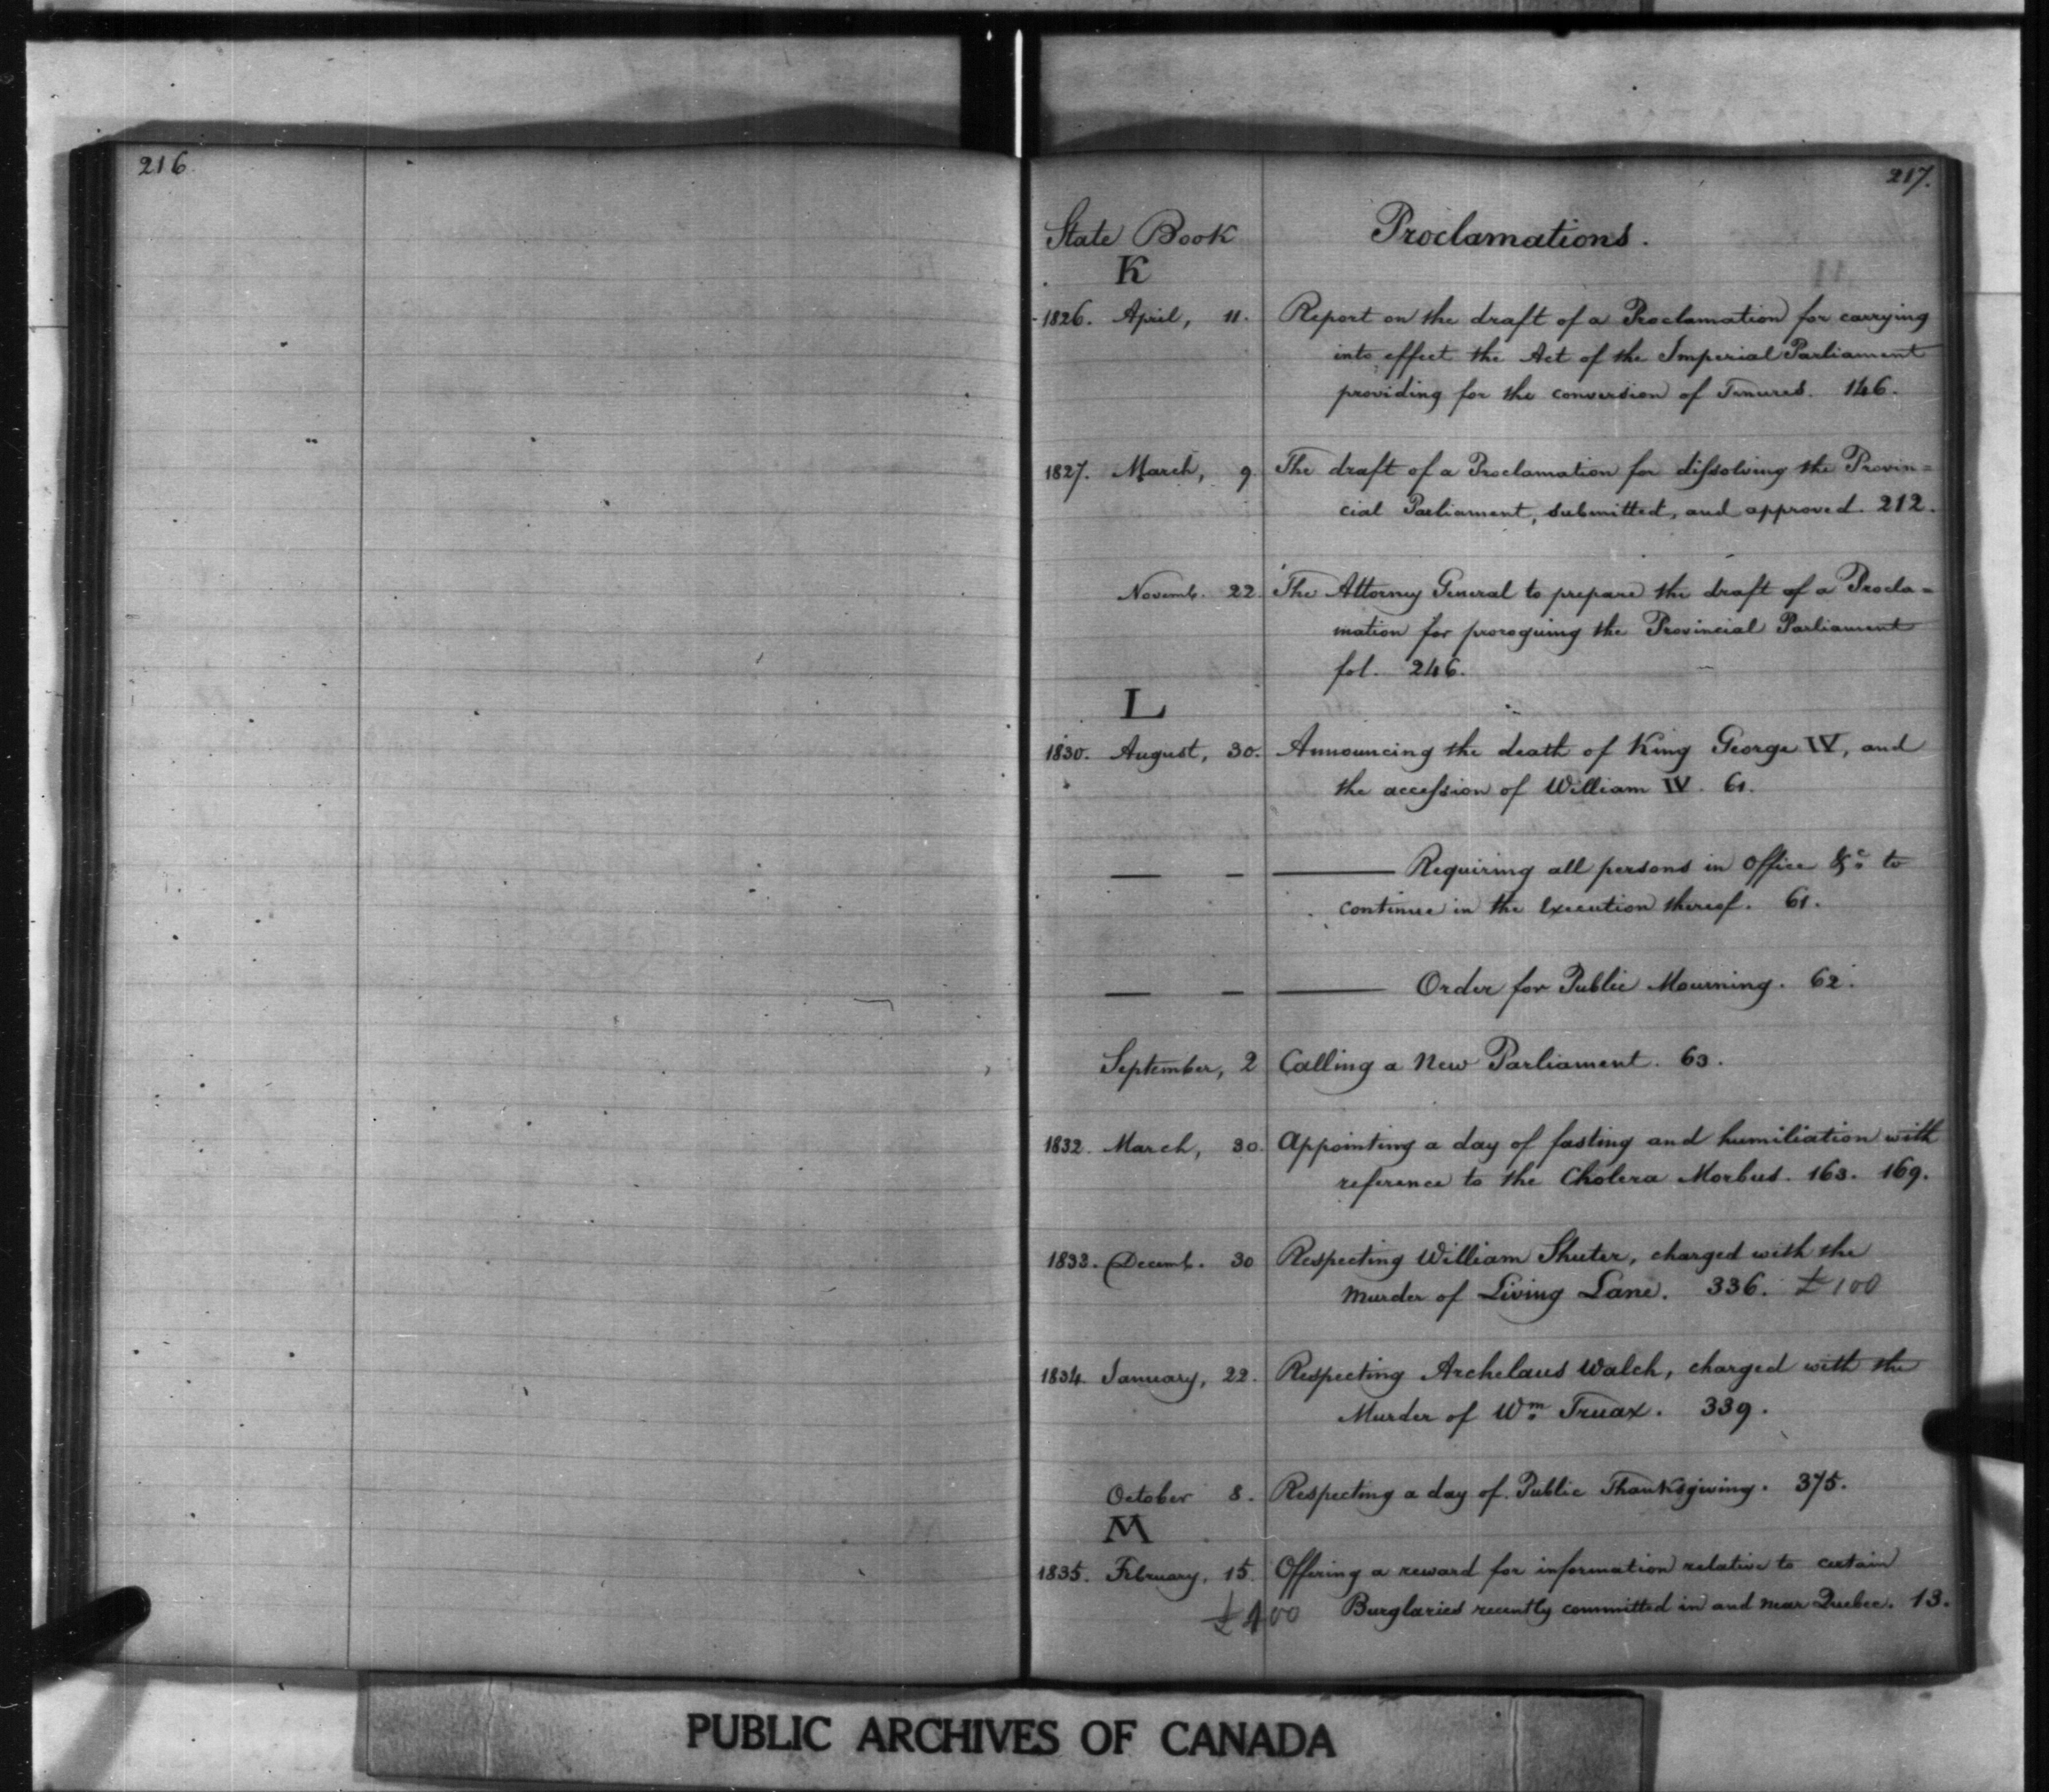 216
217.
State Book
Proclamations.
K
1826. April, 11. Report on the draft of a Proclamation for carrying
into effect the Act of the Imperial Parliament
providing for the conversion of Tenures. 146.
1827. March, 9. The draft of a Proclamation for dissolving the Provin=
cial Parliament, submitted, and approved. 212.
Novemb. 22. The Attorney General to prepare the draft of a Procla=
mation for proroguing the Provincial Parliament
fol. 246.
L
1830. August, 30. Announcing the death of King George IV, and
the accession of William IV. 61.
— — —— Requiring all persons in Office &c. to
continue in the execution thereof. 61.
— — —— Order for Public Mourning. 62.
September, 2 Calling a New Parliament. 63.
1832. March, 30. Appointing a day of fasting and humiliation with
reference to the Cholera Morbus. 163. 169.
1833. Decemb. 30 Respecting William Shuter, charged with the
Murder of Living Lane. 336. £100
1834. January, 22. Respecting Archelaus Walch, charged with the
Murder of Wm. Truax. 339.
October 8. Respecting a day of Public Thanksgiving. 375.
M
1835. February, 15. Offering a reward for information relative to certain
£100 Burglaries recently committed in and near Quebec. 13.
PUBLIC ARCHIVES OF CANADA